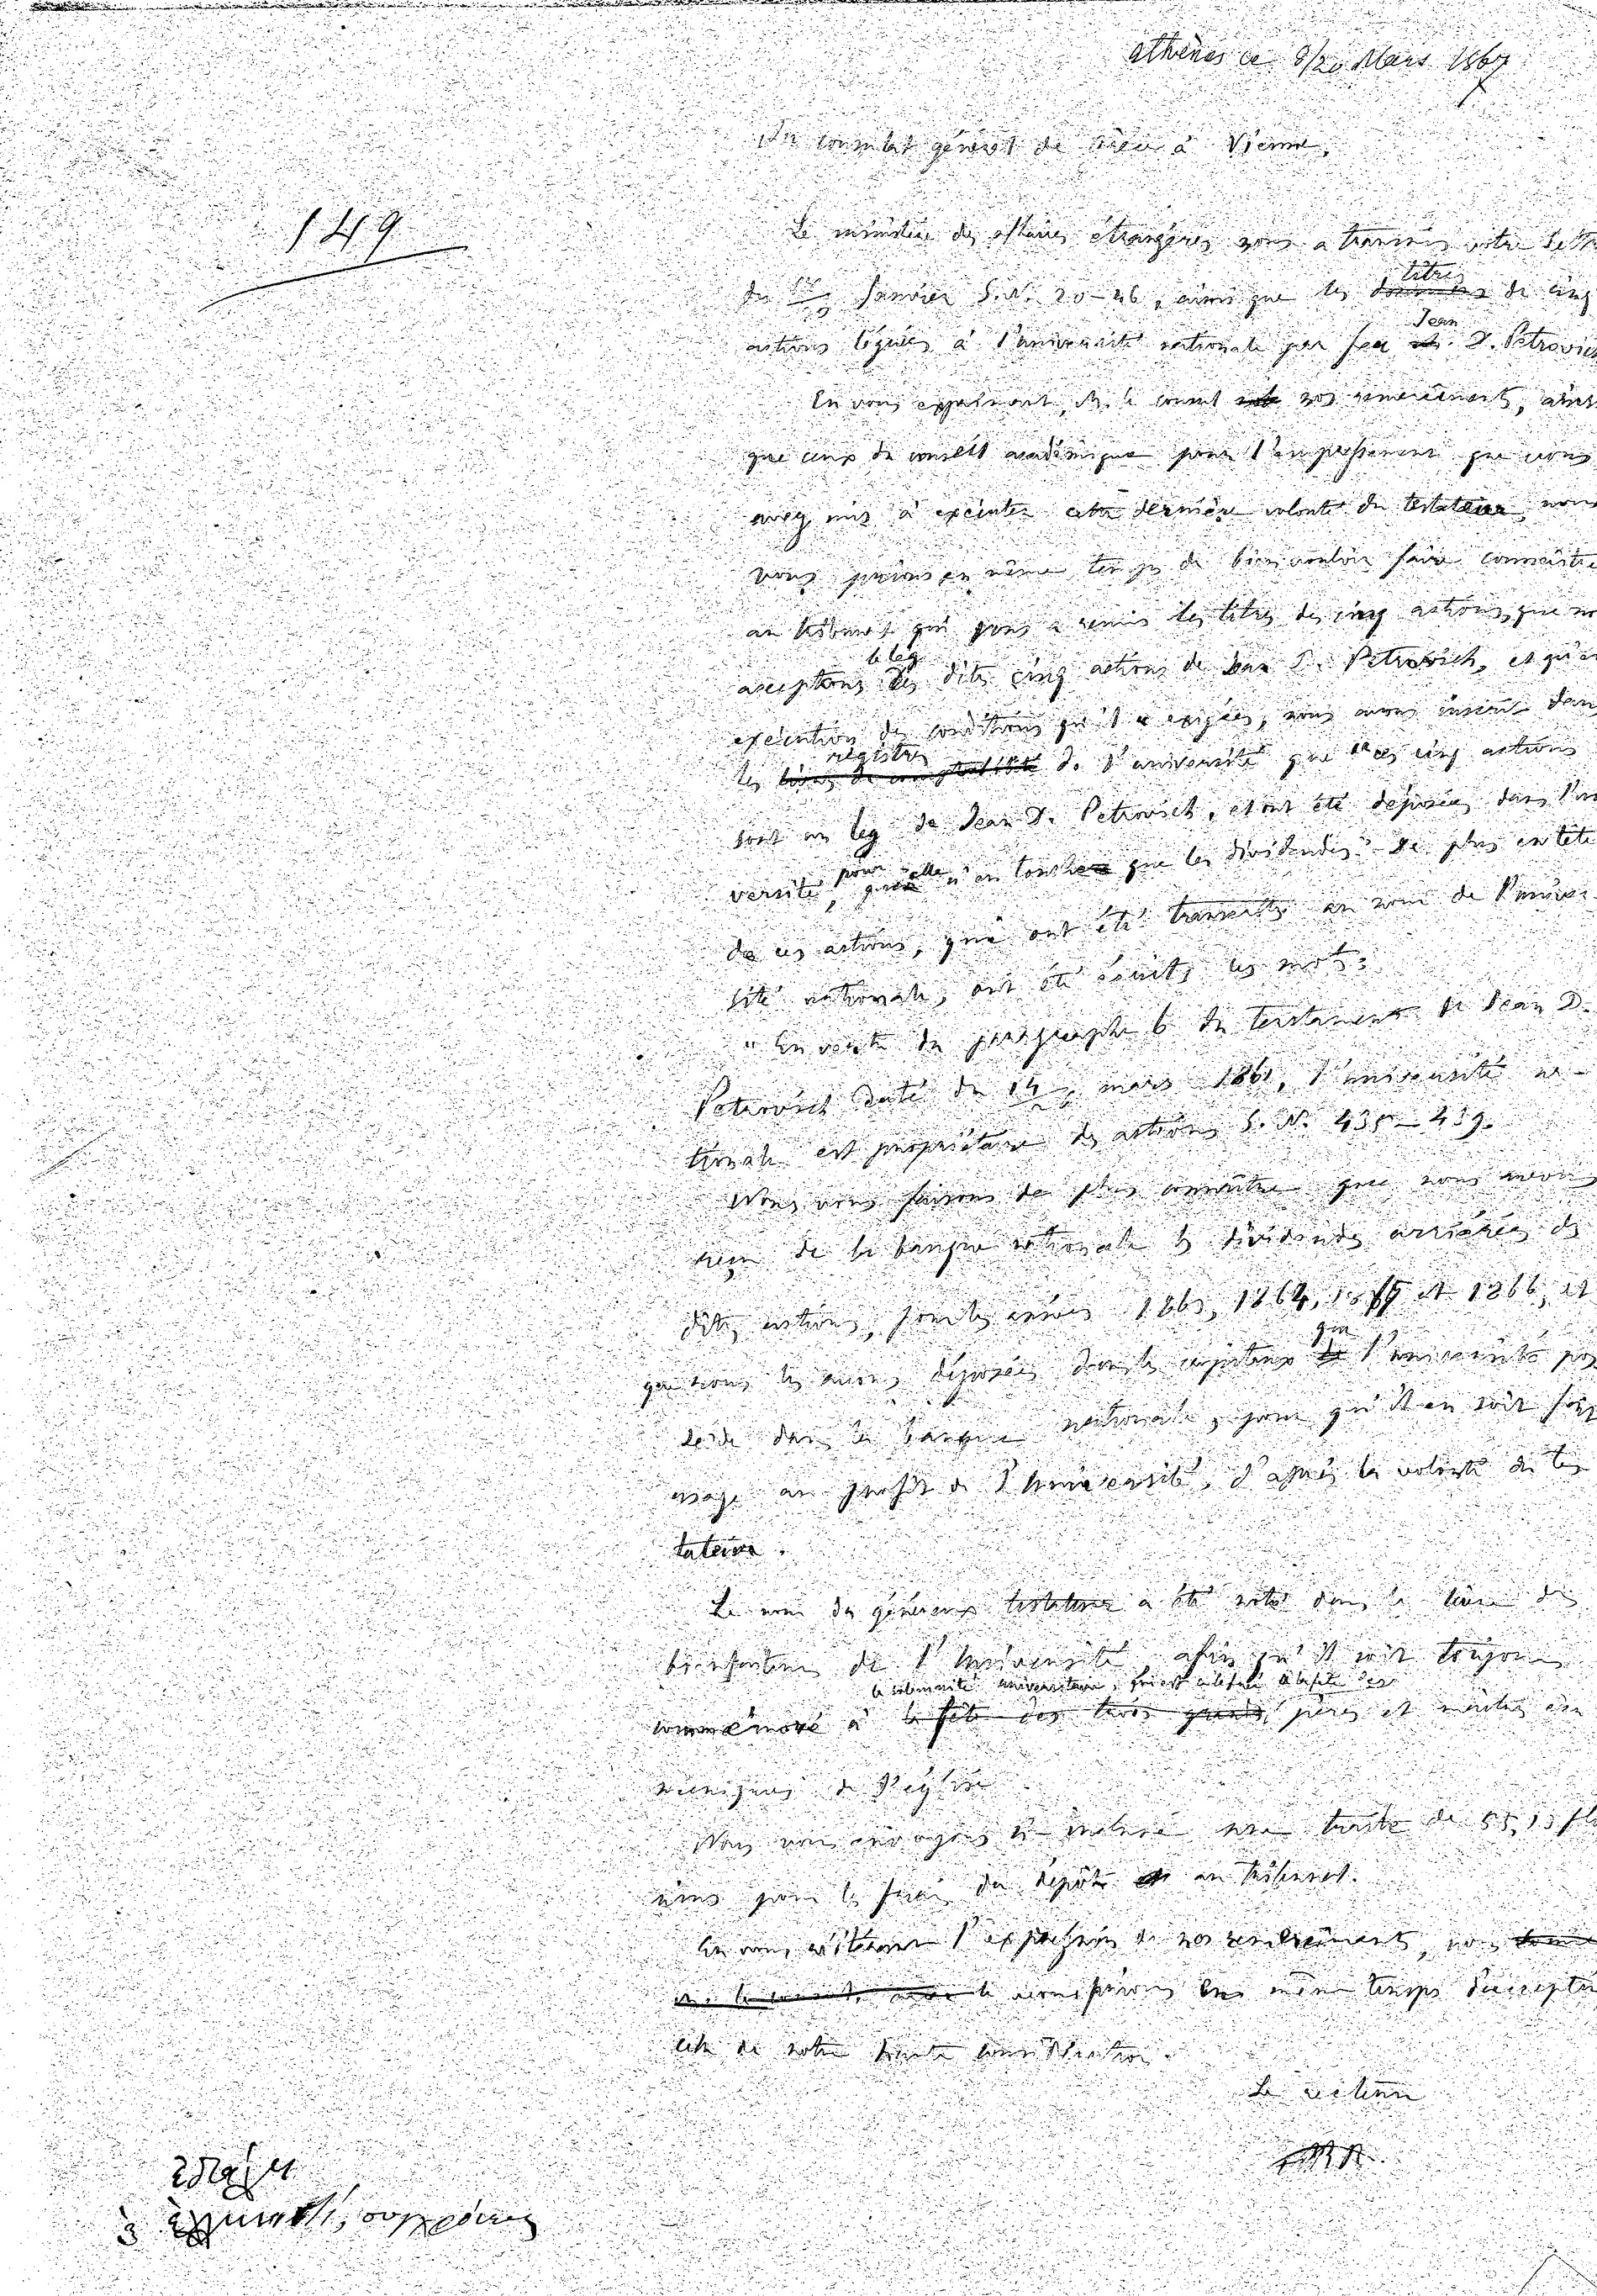 athènes ce 8/20 Mars 1867
Au consulat général de Grèce à Vienne,
149
Le ministère des affaires étrangères nous a transmis votre lettre
du Janvier S.N. 20-46, ainsi que les titres de cinq
actions léguées à l'université nationale par feu Jean D. Petrovich
En vous exprimant, M. le consul nos remerciements, ainsi
que ceux du conseil académique pour l'empressement que vous
avez mis à exécuter cette dernière volonté du testateur, nous
vous prions en même temps de bien vouloir faire connaître
au tribunal qui vous a remis les titres des cinq actions, que nous
acceptons le leg des dites cinq actions de Jean D. Petrovich, et qu'en
exécution des conditions qu'il a exigées, nous avons inscrit dans
les registres de l'université que "ces cinq actions
sont un leg de Jean D. Petrovich, et ont été déposées dans l'uni
versité, pour qu'elle n'en touche que les dividendes." De plus en tête
de ces actions, qui ont été transcrites au nom de l'univer-
sité nationale, ont été écrits les mots:
"En vertu du paragraphe 6 du testament de Jean D.
Petrovich daté du 14 mars 1861, l'université na-
tionale est propriétaire des actions S.N. 435-439.
Nous vous faisons de plus connaître que nous avons
reçu de la banque nationale les dividendes arriérés des
dites actions, pour les années 1863, 1864, 1865 et 1866, et
que nous les avons déposés dans les capitaux que l'université pos
sède dans la banque nationale, pour qu'il en soit fait
usage au profit de l'Université, d'après la volonté du tes
tateur.
Le nom du généreux testateur a été noté dans le livre des
bienfaiteurs de l'Université afin qu'il soit toujours
la solennité universitaire, qui est célébrée à la fête des
commémoré à la fête des trois grands pères et maîtres œcu
méniques de l'église
Nous vous envoyons ci-incluse une traite de 55,13 flo
rins pour les frais du dépôt au tribunal.
En vous réitérant l'expression de nos remerciements, nous
vous prions en même temps d'accepter
celle de notre haute considération.
Le recteur